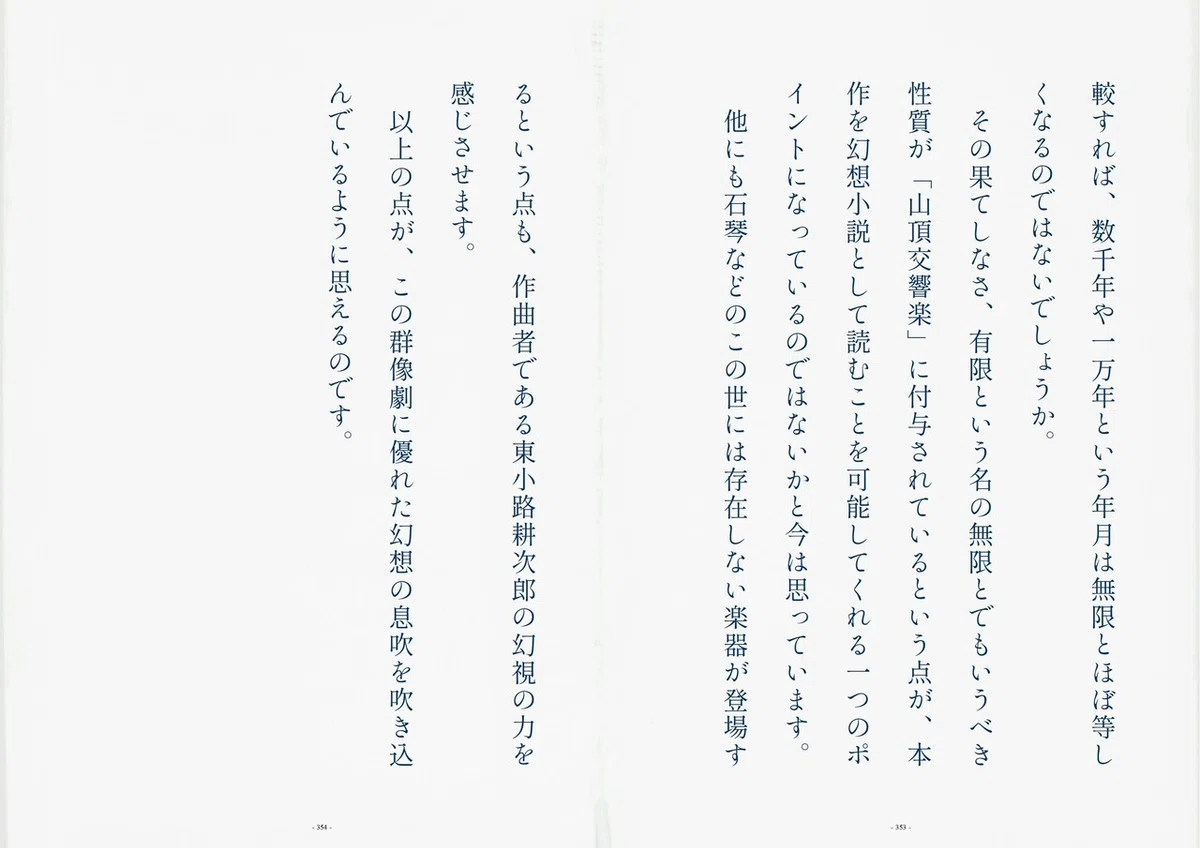 較すれば、数千年や一万年という年月は無限とほぼ等し
くなるのではないでしょうか。
その果てしなさ、有限という名の無限とでもいうべき
性質が「山頂交響楽」に付与されているという点が、本
作を幻想小説として読むことを可能してくれる一つのポ
イントになっているのではないかと今は思っています。
他にも石琴などのこの世には存在しない楽器が登場す
- 353 -
るという点も、作曲者である東小路耕次郎の幻視の力を
感じさせます。
以上の点が、この群像劇に優れた幻想の息吹を吹き込
んでいるように思えるのです。
- 354 -